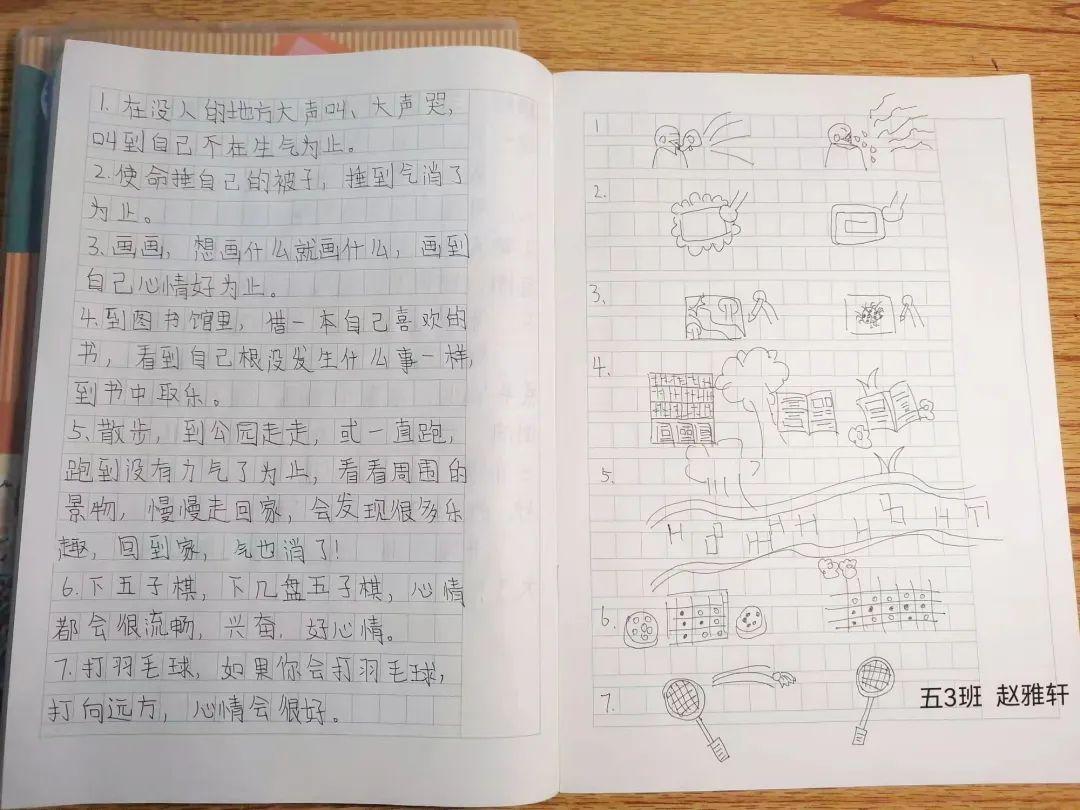 1.在没人的地方大声叫、大声哭,
叫到自己不在生气为止。
2.使命捶自己的被子,捶到气消了
为止。
3.画画,想画什么就画什么,画到
自己心情好为止。
4.到图书馆里,借一本自己喜欢的
书,看到自己根没发生什么事一样,
到书中取乐。
5.散步,到公园走走,或一直跑,
跑到没有力气了为止,看看周围的
景物,慢慢走回家,会发现很多乐
趣,回到家,气也消了!
6.下五子棋,下几盘五子棋,心情
都会很流畅,兴奋,好心情。
7.打羽毛球,如果你会打羽毛球,
打向远方,心情会很好。
1
2.
3.
4.
5.
6.
7.
五3班 赵雅轩